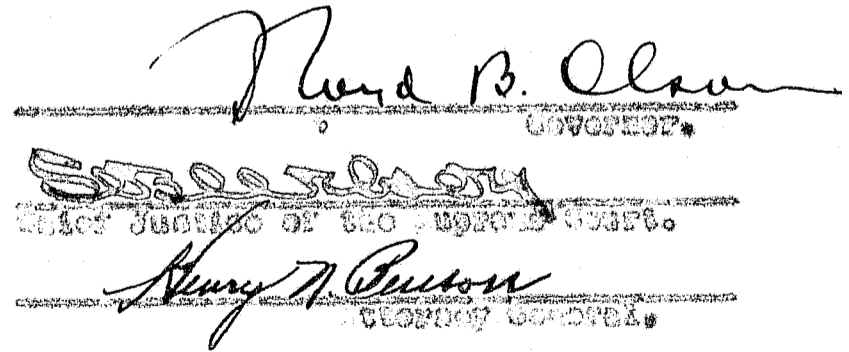 Floyd B. Olson
Governor.
Chief Justice of the Supreme Court.
Henry N. Benson
Attorney General.